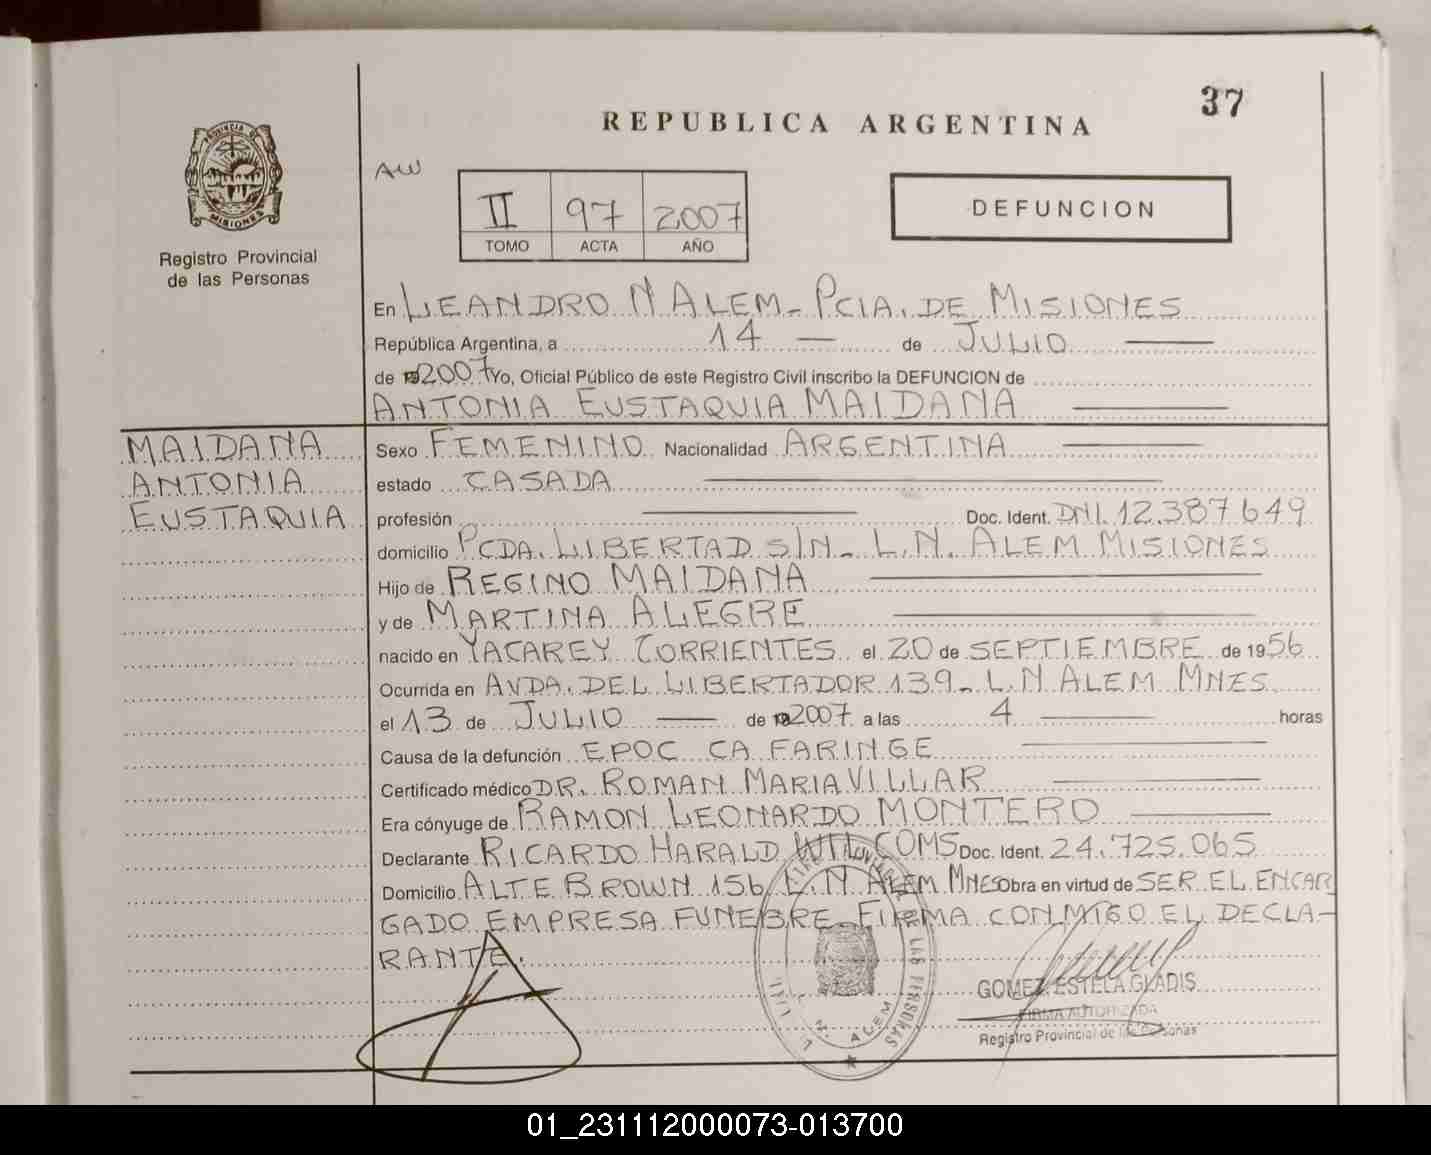 37
REPUBLICA ARGENTINA
PROVINCIA DE
MISIONES
Registro Provincial
de las Personas
AW
II 97 2007
TOMO ACTA AÑO
DEFUNCION
En LEANDRO N ALEM - PCIA. DE MISIONES
República Argentina, a 14 — de JULIO —
de 2007 Yo, Oficial Público de este Registro Civil inscribo la DEFUNCION de
ANTONIA EUSTAQUIA MAIDANA —
MAIDANA
ANTONIA
EUSTAQUIA
Sexo FEMENINO Nacionalidad ARGENTINA —
estado CASADA —
profesión — Doc. Ident. DNI. 12.387649
domicilio PCDA. LIBERTAD S/N - L.N. ALEM MISIONES
Hijo de REGINO MAIDANA —
y de MARTINA ALEGRE —
nacido en YACAREY CORRIENTES el 20 de SEPTIEMBRE de 1956
Ocurrida en AVDA. DEL LIBERTADOR 139 - L.N ALEM MNES
el 13 de JULIO — de 2007 a las 4 — horas
Causa de la defunción EPOC CA FARINGE —
Certificado médico DR. ROMAN MARIA VILLAR —
Era cónyuge de RAMON LEONARDO MONTERO —
Declarante RICARDO HARALD WILCOMS Doc. Ident. 24.725.065
Domicilio ALTE BROWN 156 L.N ALEM MNES Obra en virtud de SER EL ENCAR
GADO EMPRESA FUNEBRE FIRMA CONMIGO EL DECLA-
RANTE.
DE LAS PERSONAS
N. ALEM
GOMEZ ESTELA GLADIS
FIRMA AUTORIZADA
Registro Provincial de las Personas
01_231112000073-013700